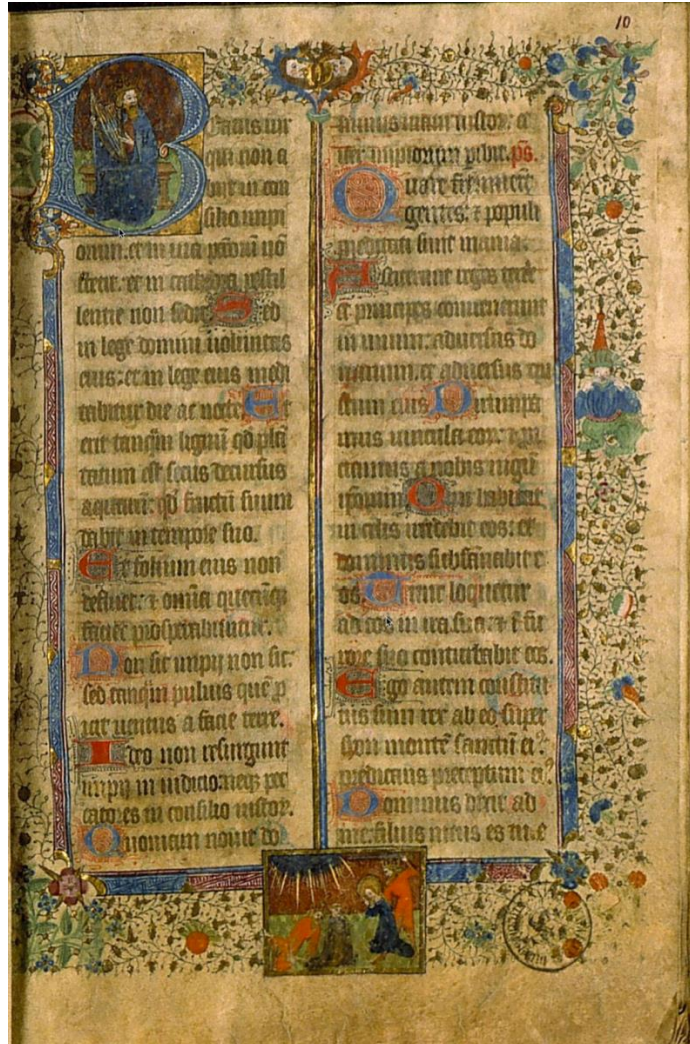 10
Beatus vir
qui non a
biit in con
silio impi
orum. et in via pctorū nō
stetit. et in cathedra pestil
lentie non sedit Sed
in lege domini voluntas
eius: et in lege eius medi
tabitur die ac nocte Et
erit tanq̄m lignū qd plā
tatum est secus decursus
aquarum: qd fructū suum
dabit in tempore suo.
Et folium eius non
defluet: ⁊ omīa quecūq
faciet prosperabuntur.
Non sic impij non sic:
sed tanq̄m puluis quē p
icit ventus a facie terre.
Ideo non resurgunt
impij in iudicio: neq pec
catores in consilio iustoꝝ.
Quoniam nouit do
minus viam iustoꝝ. et
iter impiorum pibit. ps.
Quare fremuerūt
gentes: ⁊ populi
meditati sunt inania:
Asteterunt reges terre
et principes conuenerunt
in unum: aduersus do
minum. et aduersus cri
stum eius Dirumpa
mus vincula eoꝝ: ⁊ pii
ciamus a nobis iugū
ipsorum Qui habitat
in celis irridebit eos: et
dominus subsannabit e
os Tunc loquetur
ad eos in ira sua: ⁊ ī fu
rore suo conturbabit eos.
Ego autem constitu
tus sum rex ab eo super
syon montē sanctū eiꝰ
predicans preceptum eiꝰ
Dominus dixit ad
me: filius meus es tu. e